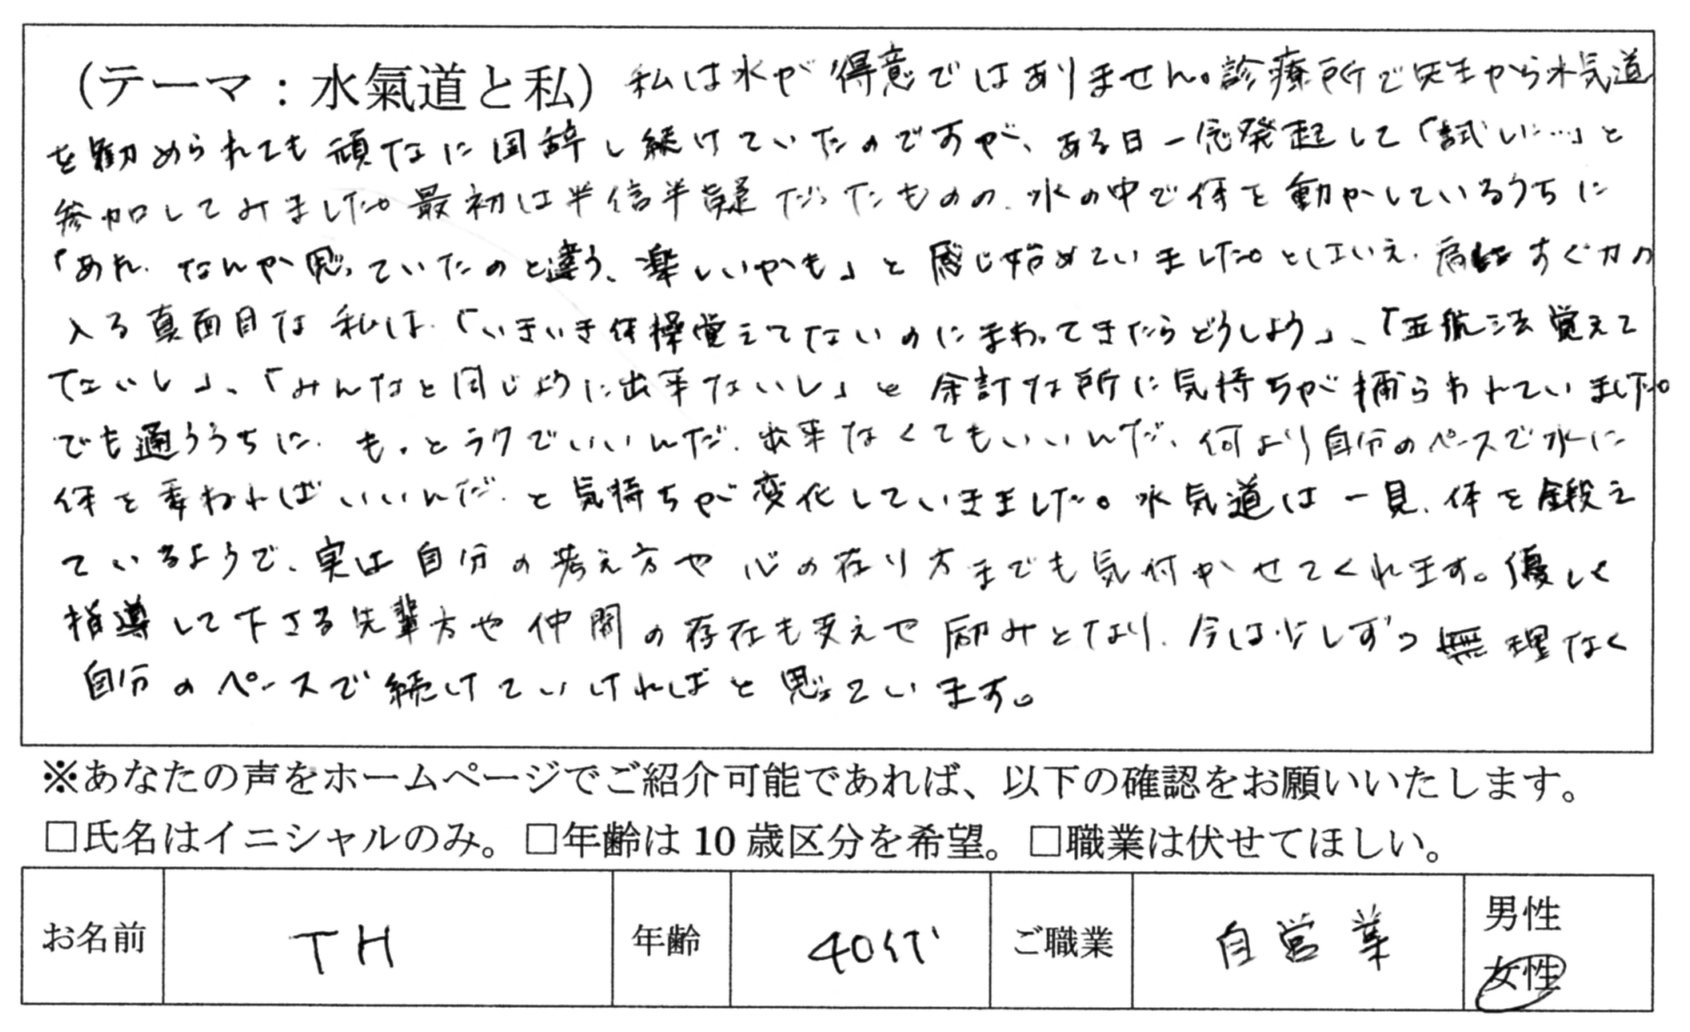 （テーマ：水氣道と私）私は水が得意ではありません。診療所で先生から水気道
を勧められても頑なに固辞し続けていたのですが、ある日一念発起して「試しに…」と
参加してみました。最初は半信半疑だったものの、水の中で体を動かしているうちに
「あれ、なんか思っていたのと違う、楽しいかも」と感じ始めていました。とはいえ、すぐ力の
入る真面目な私は、「いきいき体操覚えてないのにまわってきたらどうしよう」、「五航法覚えて
てないし」、「みんなと同じように出来ないし」と余計な所に気持ちが捕らわれていました。
でも通ううちに、もっとラクでいいんだ、出来なくてもいいんだ、何より自分のペースで水に
体を委ねればいいんだ、と気持ちが変化していきました。水気道は一見、体を鍛え
ているようで、実は自分の考え方や心の在り方までも気付かせてくれます。優しく
指導して下さる先輩方や仲間の存在も支えや励みとなり、今は少しずつ無理なく
自分のペースで続けていければと思っています。
※あなたの声をホームページでご紹介可能であれば、以下の確認をお願いいたします。
□氏名はイニシャルのみ。□年齢は10歳区分を希望。□職業は伏せてほしい。
お名前 TH 年齢 40代 ご職業 自営業 男性
女性